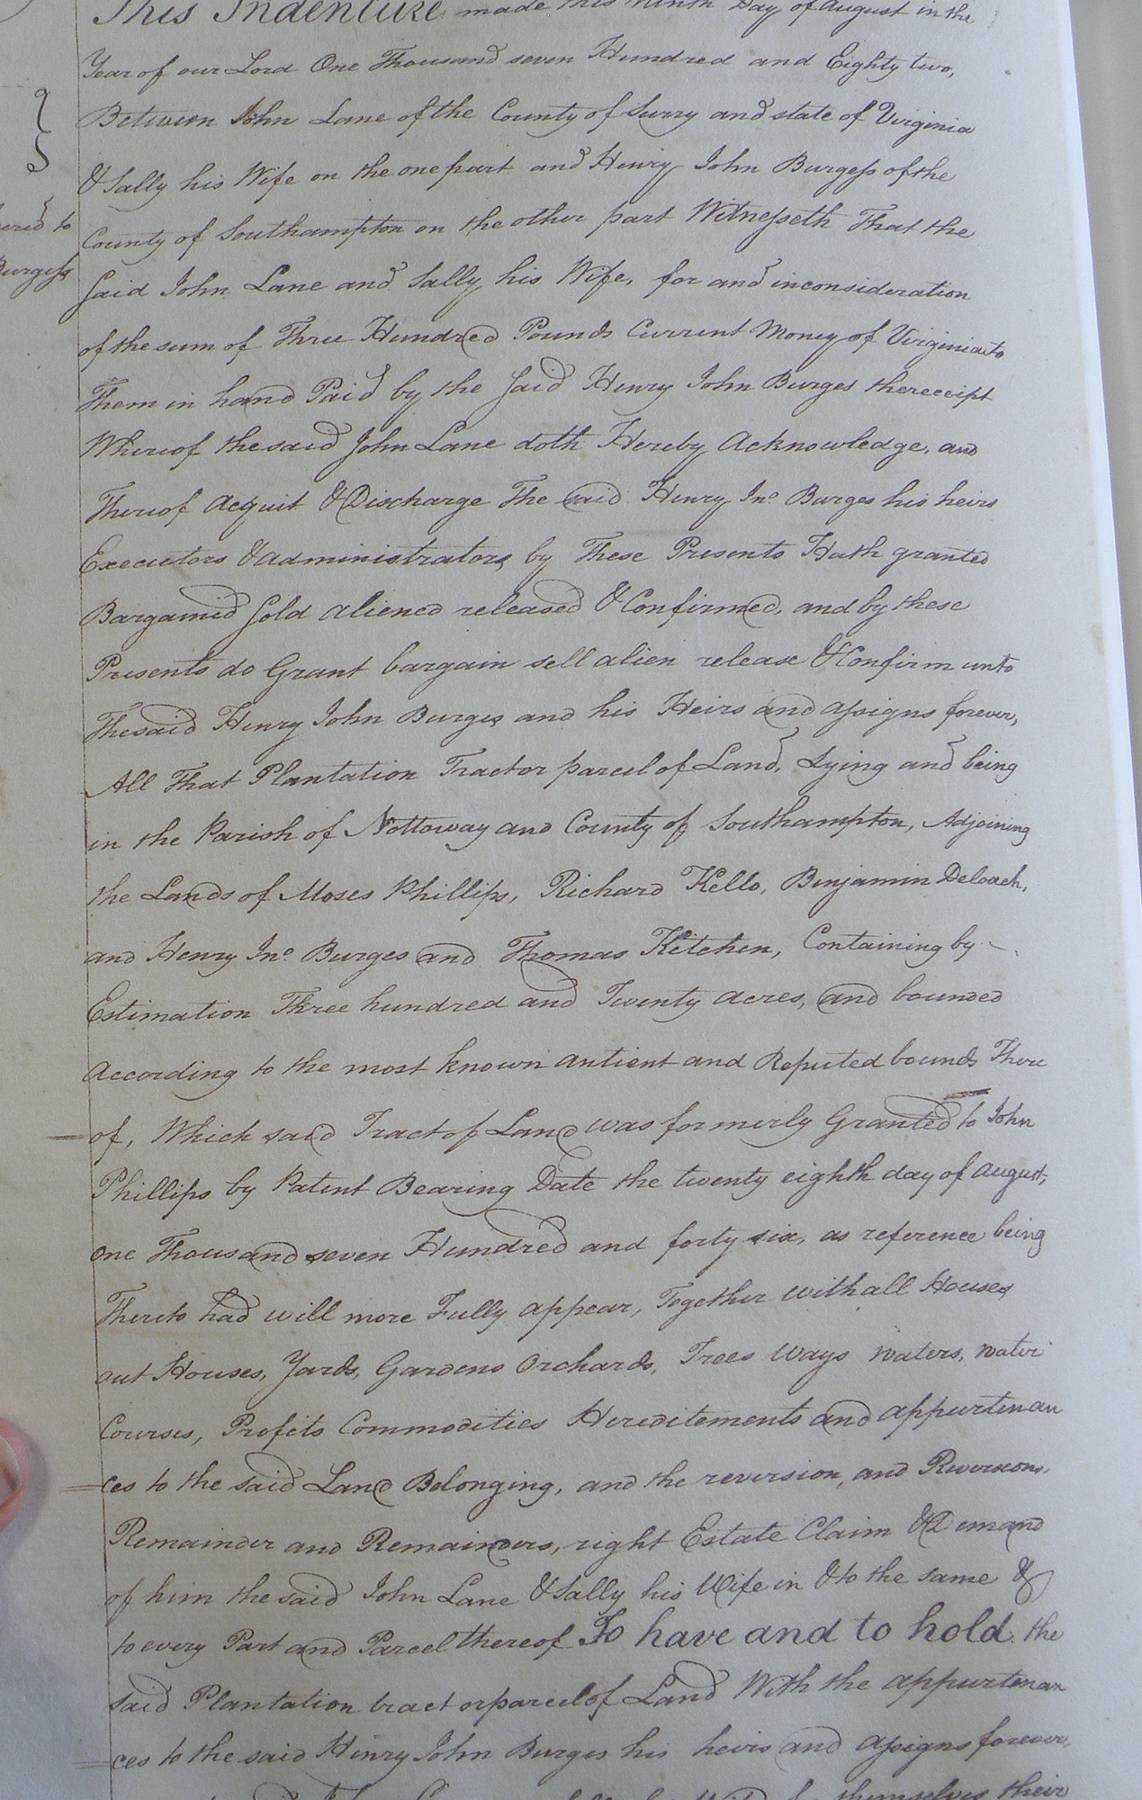 This Indenture made this Ninth Day of August in the
Year of our Lord One Thousand seven Hundred and Eighty two,
Between John Lane of the County of Surry and state of Virginia
& Sally his Wife on the one part and Henry John Burgess of the
County of Southampton on the other part Witnesseth That the
Said John Lane and Sally his Wife, for and inconsideration
of the sum of Three Hundred Pounds Current Money of Virginia to
Them in hand Paid by the Said Henry John Burges thereceipt
Whereof the said John Lane doth Hereby Acknowledge, and
Thereof Acquit & Discharge The said Henry Jno. Burges his heirs
Executors & administrators by These Presents Hath granted
Bargained Sold aliened released & Confirmed, and by these
Presents do Grant bargain sell alien release & Confirm unto
The said Henry John Burges and his Heirs and assigns forever,
All That Plantation Tract or parcel of Land, Lying and being
in the Parish of Nottoway and County of Southampton, Adjoining
the Lands of Moses Phillips, Richard Kello, Benjamin Deloach,
and Henry Jno. Burges and Thomas Kitchen, Containing by
Estimation Three hundred and Twenty acres, and bounded
According to the most known antient and Reputed bounds There
of, Which said Tract of Land was formerly Granted to John
Phillips by Patent Bearing Date the twenty eighth day of August,
one Thousand seven Hundred and forty six, as reference being
Thereto had will more Fully appear, Together with all Houses
out Houses, Yards, Gardens Orchards, Trees Ways Waters, Water
Courses, Profits Commodities Hereditements and appurtenan
=ces to the said Land Belonging, and the reversion, and Reversions,
Remainder and Remainders, right Estate Claim & Demand
of him the said John Lane & Sally his Wife in & to the same &
to every Part and Parcel thereof To have and to hold the
said Plantation tract or parcel of Land With the appurtenan
=ces to the said Henry John Burges his heirs and assigns forever,
themselves their
ered to
Burgess